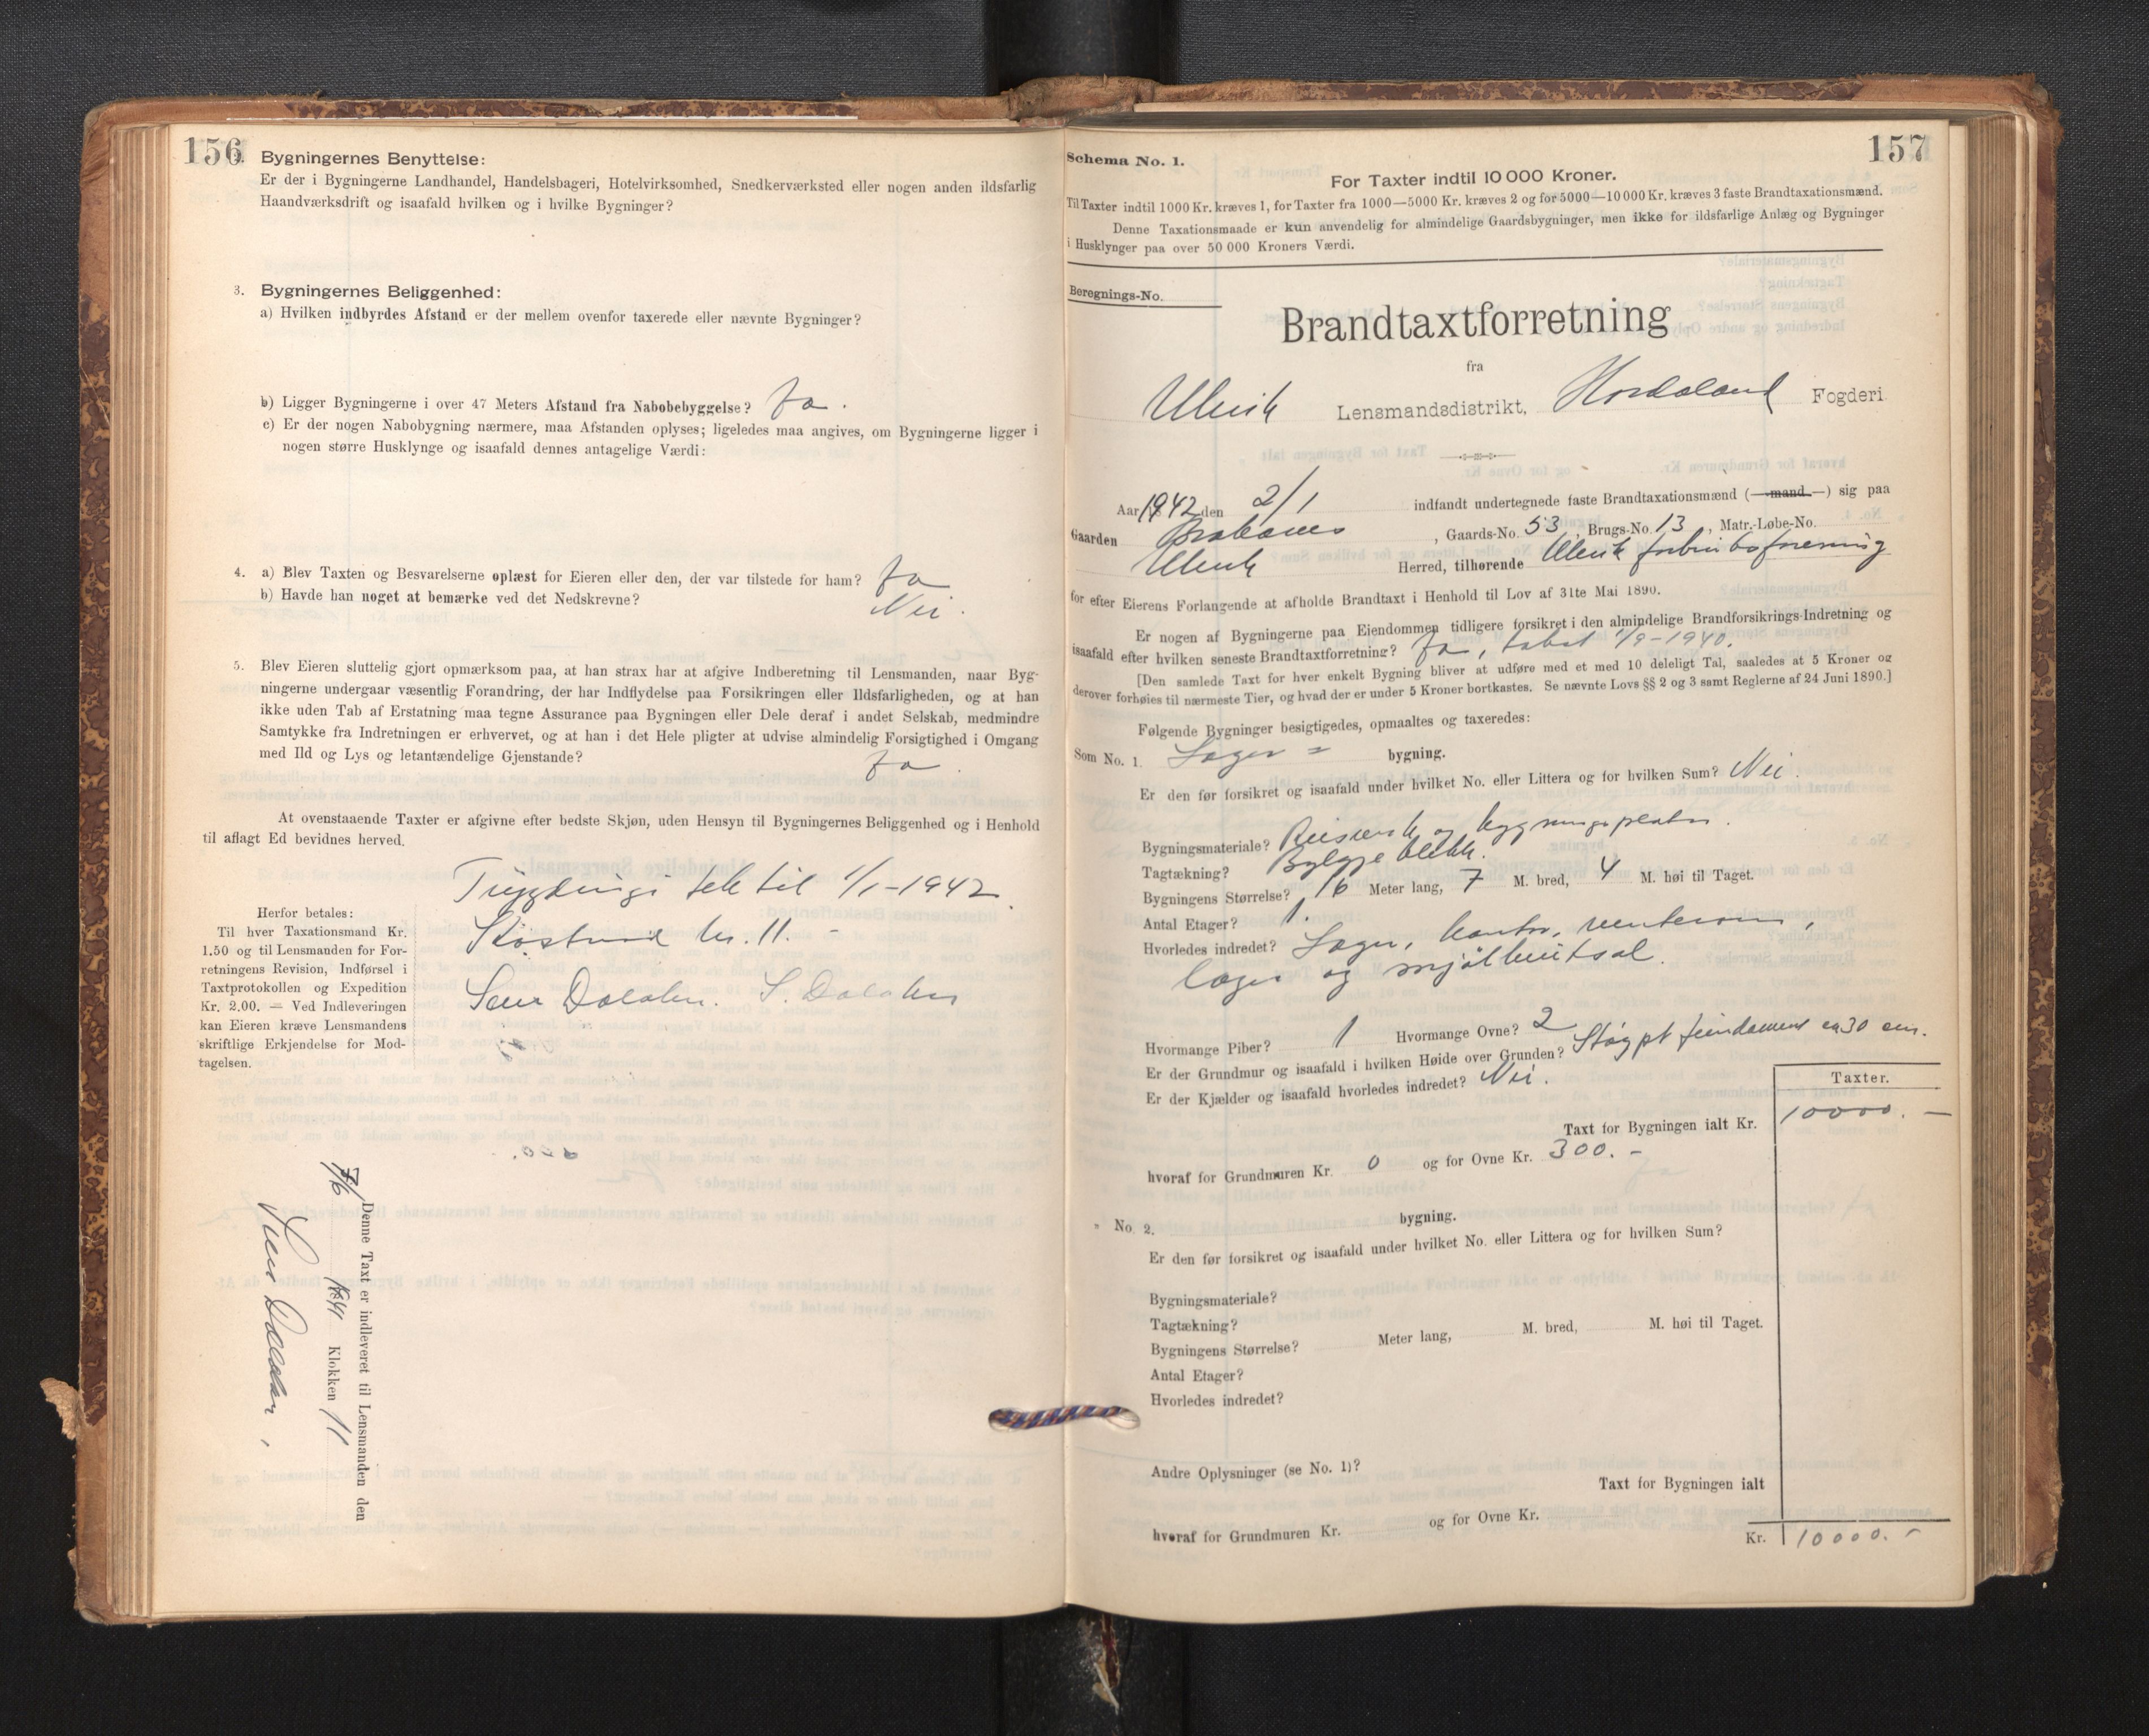 156
2. Bygningernes Benyttelse:
Er der i Bygningerne Landhandel, Handelsbageri, Hotelvirksomhed, Snedkerværksted eller nogen anden ildsfarlig
Haandværksdrift og isaafald hvilken og i hvilke Bygninger?
3. Bygningernes Beliggenhed:
a) Hvilken indbyrdes Afstand er der mellem ovenfor taxerede eller nævnte Bygninger?
b) Ligger Bygningerne i over 47 Meters Afstand fra Nabobebyggelse? Ja.
c) Er der nogen Nabobygning nærmere, maa Afstanden oplyses; ligeledes maa angives, om Bygningerne ligger i
nogen større Husklynge og isaafald dennes antagelige Værdi:
4. a) Blev Taxten og Besvarelserne oplæst for Eieren eller den, der var tilstede for ham? Ja
b) Havde han noget at bemærke ved det Nedskrevne? Nei.
5. Blev Eieren sluttelig gjort opmærksom paa, at han strax har at afgive Indberetning til Lensmanden, naar Byg-
ningerne undergaar væsentlig Forandring, der har Indflydelse paa Forsikringen eller Ildsfarligheden, og at han
ikke uden Tab af Erstatning maa tegne Assurance paa Bygningen eller Dele deraf i andet Selskab, medmindre
Samtykke fra Indretningen er erhvervet, og at han i det Hele pligter at udvise almindelig Forsigtighed i Omgang
med Ild og Lys og letantændelige Gjenstande? Ja.
At ovenstaaende Taxter er afgivne efter bedste Skjøn, uden Hensyn til Bygningernes Beliggenhed og i Henhold
til aflagt Ed bevidnes herved.
til 1/1-1942
11. -
Herfor betales:
Til hver Taxationsmand Kr.
1.50 og til Lensmanden for For-
retningens Revision, Indførsel i
Taxtprotokollen og Expedition
Kr. 2.00. — Ved Indleveringen
kan Eieren kræve Lensmandens
skriftlige Erkjendelse for Mod-
tagelsen.
Denne Taxt er indleveret til Lensmanden den
7/6 Klokken 11
157
Schema No. 1.
For Taxter indtil 10 000 Kroner.
Til Taxter indtil 1000 Kr. kræves 1, for Taxter fra 1000—5000 Kr. kræves 2 og for 5000—10 000 Kr. kræves 3 faste Brandtaxationsmænd.
Denne Taxationsmaade er kun anvendelig for almindelige Gaardsbygninger, men ikke for ildsfarlige Anlæg og Bygninger
i Husklynger paa over 50 000 Kroners Værdi.
Beregnings-No.
Brandtaxtforretning
fra
Ulvik Lensmandsdistrikt, Hordaland Fogderi
Aar 1942 den 2/1 indfandt undertegnede faste Brandtaxationsmænd (—mand—) sig paa
Gaarden Brakanes, Gaards-No. 53, Brugs-No. 13, Matr.-Løbe-No.
Ulvik Herred, tilhørende Ulvik forbruksforening
for efter Eierens Forlangende at afholde Brandtaxt i Henhold til Lov af 31te Mai 1890.
Er nogen af Bygningerne paa Eiendommen tidligere forsikret i den almindelige Brandforsikrings-Indretning og
isaafald efter hvilken seneste Brandtaxtforretning? Ja, takst 11/9-1940.
[Den samlede Taxt for hver enkelt Bygning bliver at udføre med et med 10 deleligt Tal, saaledes at 5 Kroner og
derover forhøies til nærmeste Tier, og hvad der er under 5 Kroner bortkastes. Se nævnte Lovs §§ 2 og 3 samt Reglerne af 24 Juni 1890.]
Følgende Bygninger besigtigedes, opmaaltes og taxeredes:
Som No. 1. Lager- bygning.
Er den før forsikret og isaafald under hvilket No. eller Littera og for hvilken Sum? Nei.
Bygningsmateriale? Reisverk og bygningsplater.
Tagtækning? Bylgje blekk.
Bygningens Størrelse? 16 Meter lang, 7 M. bred, 4 M. høi til Taget.
Antal Etager? 1.
Hvorledes indredet? Lager, kontor, venterom,
lager og mjølkeutsal.
Hvormange Piber? 1 Hvormange Ovne? 2
Er der Grundmur og isaafald i hvilken Høide over Grunden? Støypt fundament ca 30 cm.
Er der Kjælder og isaafald hvorledes indredet? Nei.
Taxter.
Taxt for Bygningen ialt Kr. 10000. —
hvoraf for Grundmuren Kr. 0 og for Ovne Kr. 300. -
" No. 2. bygning.
Er den før forsikret og isaafald under hvilket No. eller Littera og for hvilken Sum?
Bygningsmateriale?
Tagtækning?
Bygningens Størrelse? Meter lang, M. bred, M. høi til Taget.
Antal Etager?
Hvorledes indredet?
Andre Oplysninger (se No. 1)?
Taxt for Bygningen ialt
hvoraf for Grundmuren Kr. og for Ovne Kr.
Kr. 10000. -